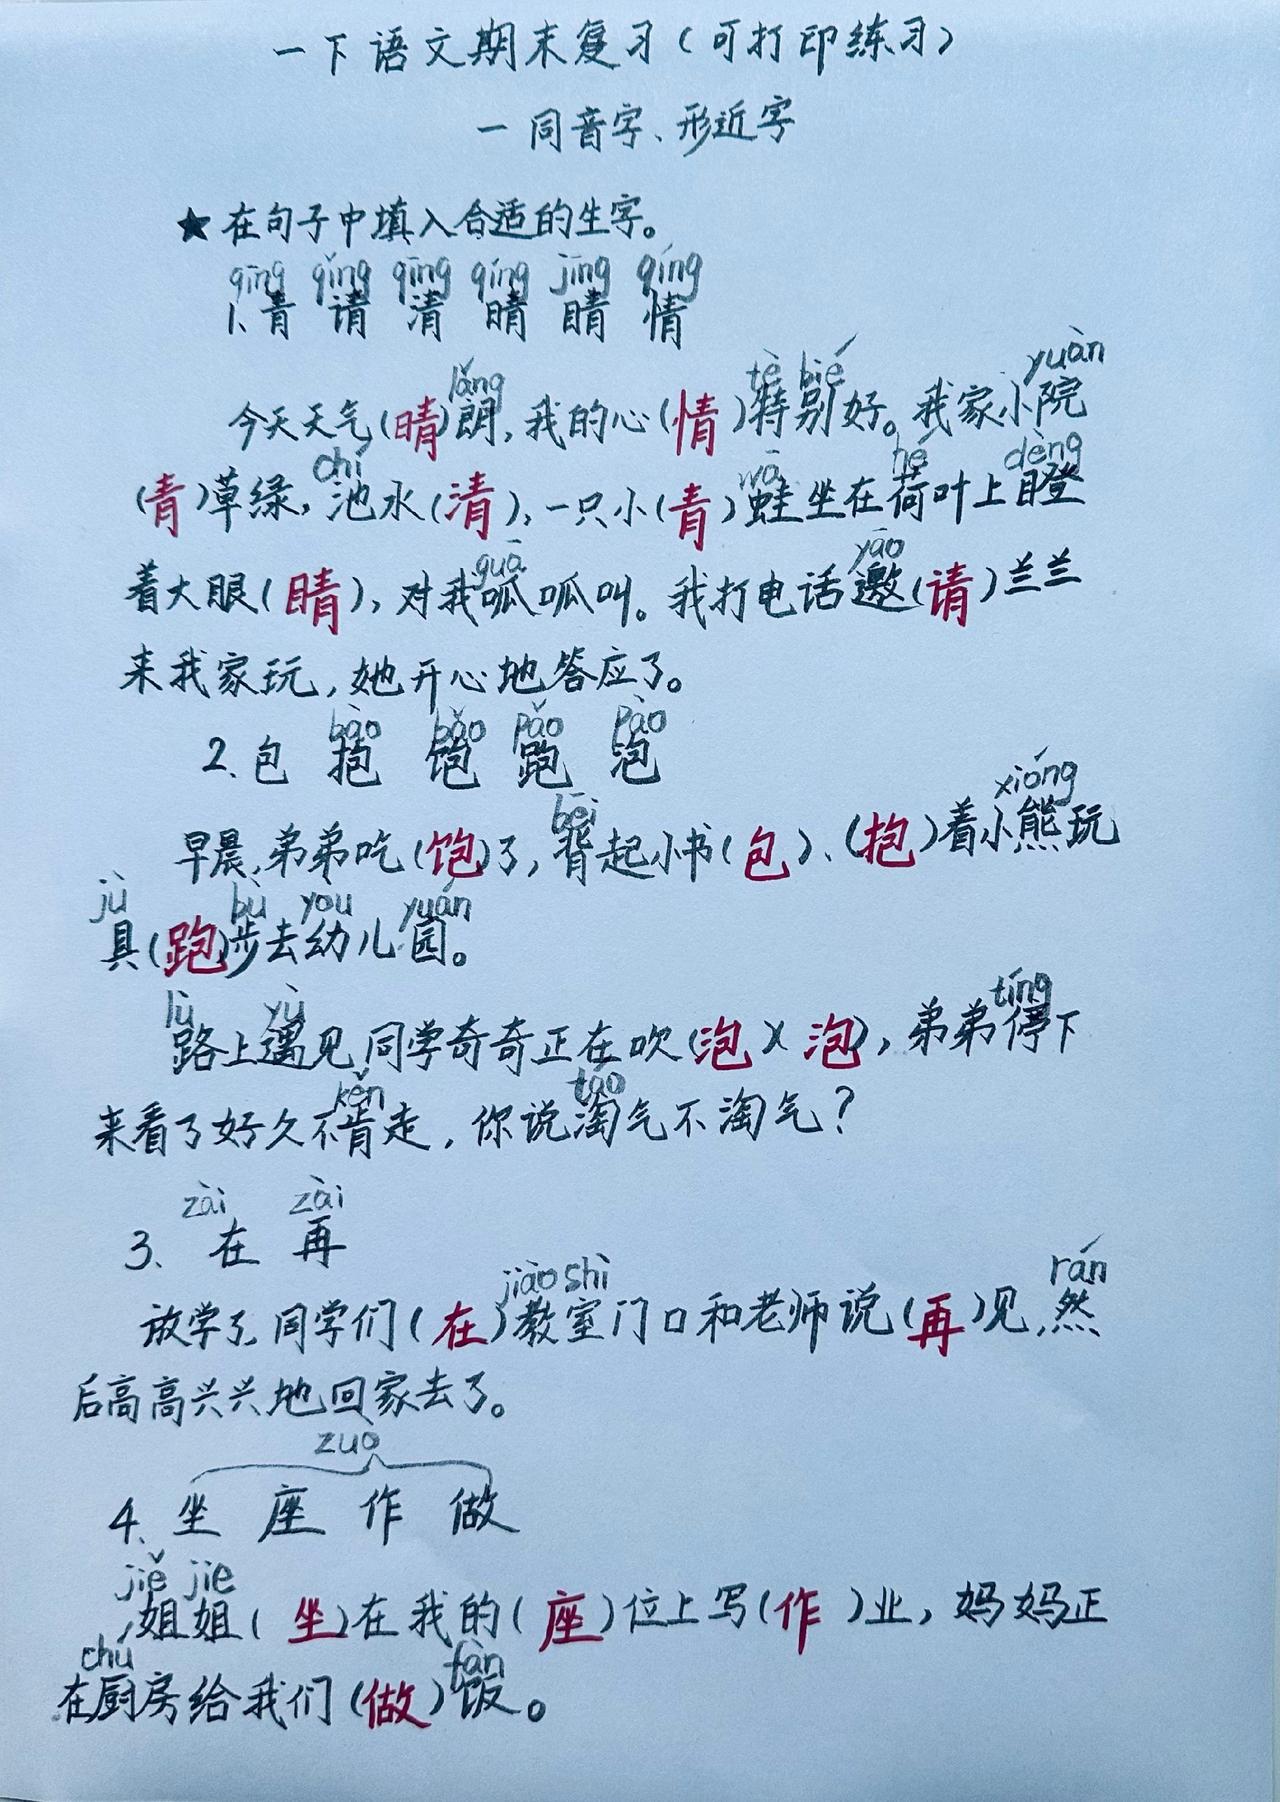 一下语文期末复习(可打印练习)
一同音字、形近字
★在句子中填入合适的生字。
qīng qǐng qīng qíng jīng qíng
1、青 请 清 晴 睛 情
lǎng tè bié yuàn
今天天气(晴)朗,我的心(情)特别好。我家小院
chí wā hé dèng
(青)草绿,池水(清),一只小(青)蛙坐在荷叶上瞪
guā yāo
着大眼(睛),对我呱呱叫。我打电话邀(请)兰兰
来我家玩,她开心地答应了。
bào bǎo pǎo pào
2、包 抱 饱 跑 泡
bēi xióng
早晨,弟弟吃(饱)了,背起小书(包)、(抱)着小熊玩
jù bù yòu yuán
具(跑)步去幼儿园。
lù yù tíng
路上遇见同学奇奇正在吹(泡)(泡),弟弟停下
kěn táo
来看了好久不肯走,你说淘气不淘气?
zài zài
3、在 再
jiào shì rán
放学了,同学们(在)教室门口和老师说(再)见,然
后高高兴兴地回家去了。
zuo
4、坐 座 作 做
jiě jie
姐姐(坐)在我的(座)位上写(作)业,妈妈正
chú fàn
在厨房给我们(做)饭。